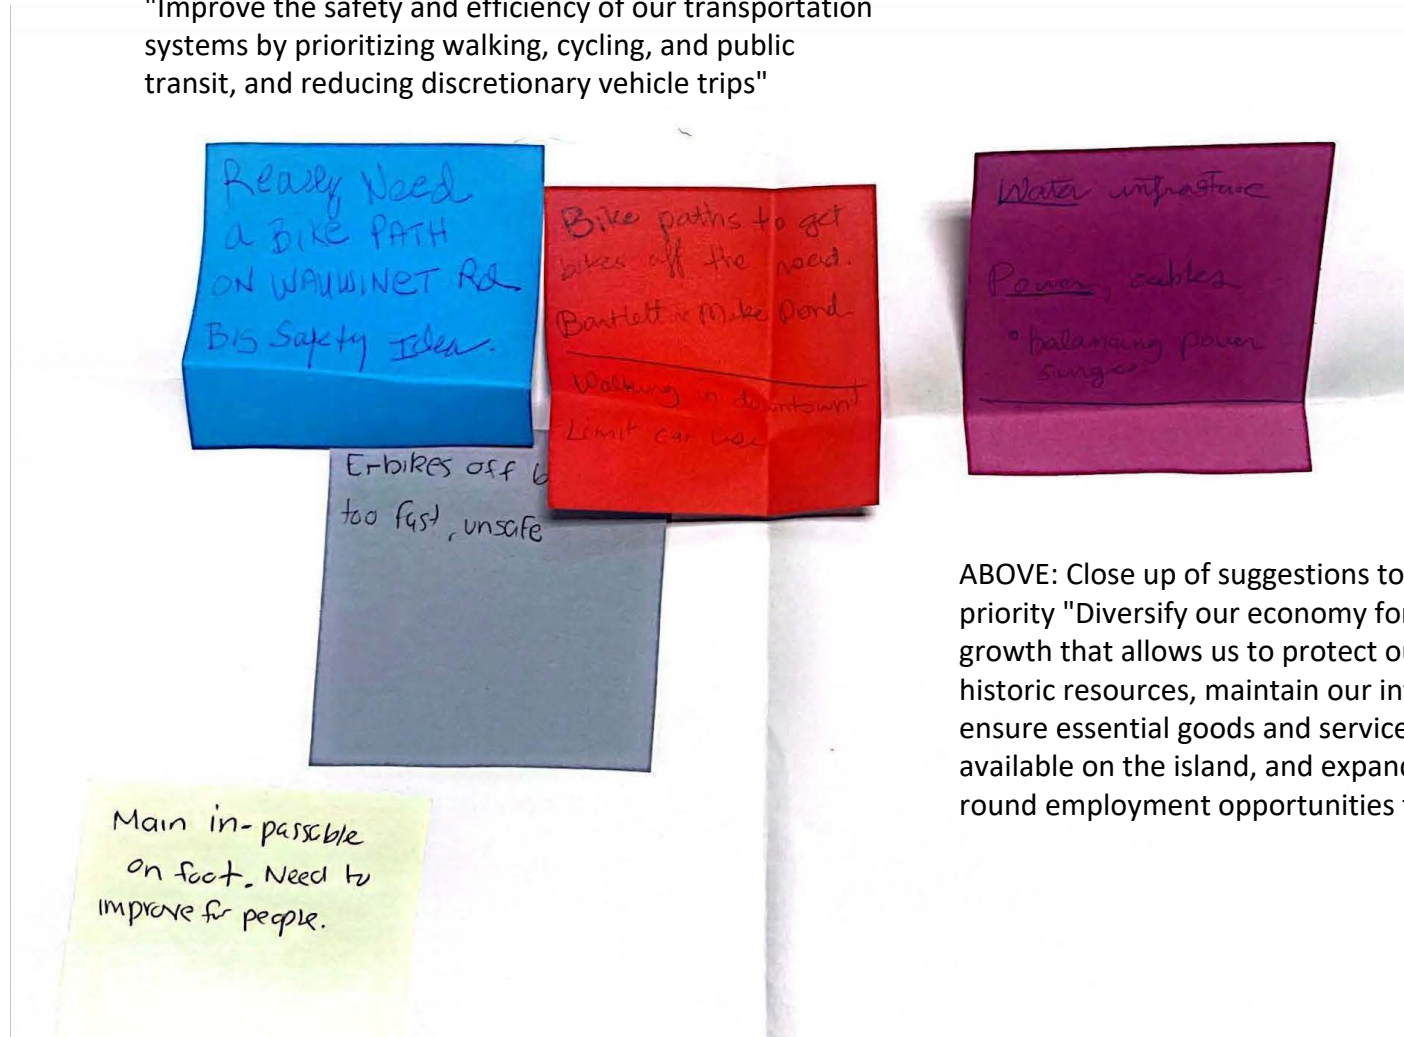 "Improve the safety and efficiency of our transportation
systems by prioritizing walking, cycling, and public
transit, and reducing discretionary vehicle trips"
Really Need
a BIKE PATH
ON WAUWINET Rd
BIG Safety Idea.
Bike paths to get
bikes off the road.
Bartlett & Mike Pond
Walking in downtown
Limit car use
Water infrasture
Power, cables
• balancing power
surges
E-bikes off b
too fast, unsafe
Main in-passable
on foot. Need to
improve for people.
ABOVE: Close up of suggestions to
priority "Diversify our economy for
growth that allows us to protect ou
historic resources, maintain our in
ensure essential goods and service
available on the island, and expand
round employment opportunities